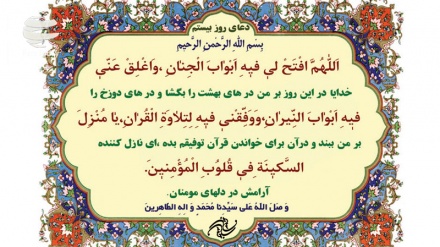 دعای روز بیستم
بِسْمِ اللَّهِ الرَّحْمَنِ الرَّحِيمِ
اَللَّهُمَّ افْتَحْ لي فيهِ اَبْوابَ الْجِنانِ ،وَاَغْلِقْ عَنّي
خدایا در این روز بر من در های بهشت را بگشا و در های دوزخ را
فيهِ اَبْوابَ النّيرانِ،وَوَفِّقْني فيهِ لِتِلاوَةِ الْقُرانِ،يا مُنْزِلَ
بر من ببند و درآن برای خواندن قرآن توفیقم بده ،ای نازل کننده
السَّكينَةِ في قُلُوبِ الْمُؤْمِنينَ.
آرامش در دلهای مومنان.
وَ صَلِّ اللهُ عَلی سَیِّدنا مُحَمَدٍ وَ الِهِ الطّاهِرین